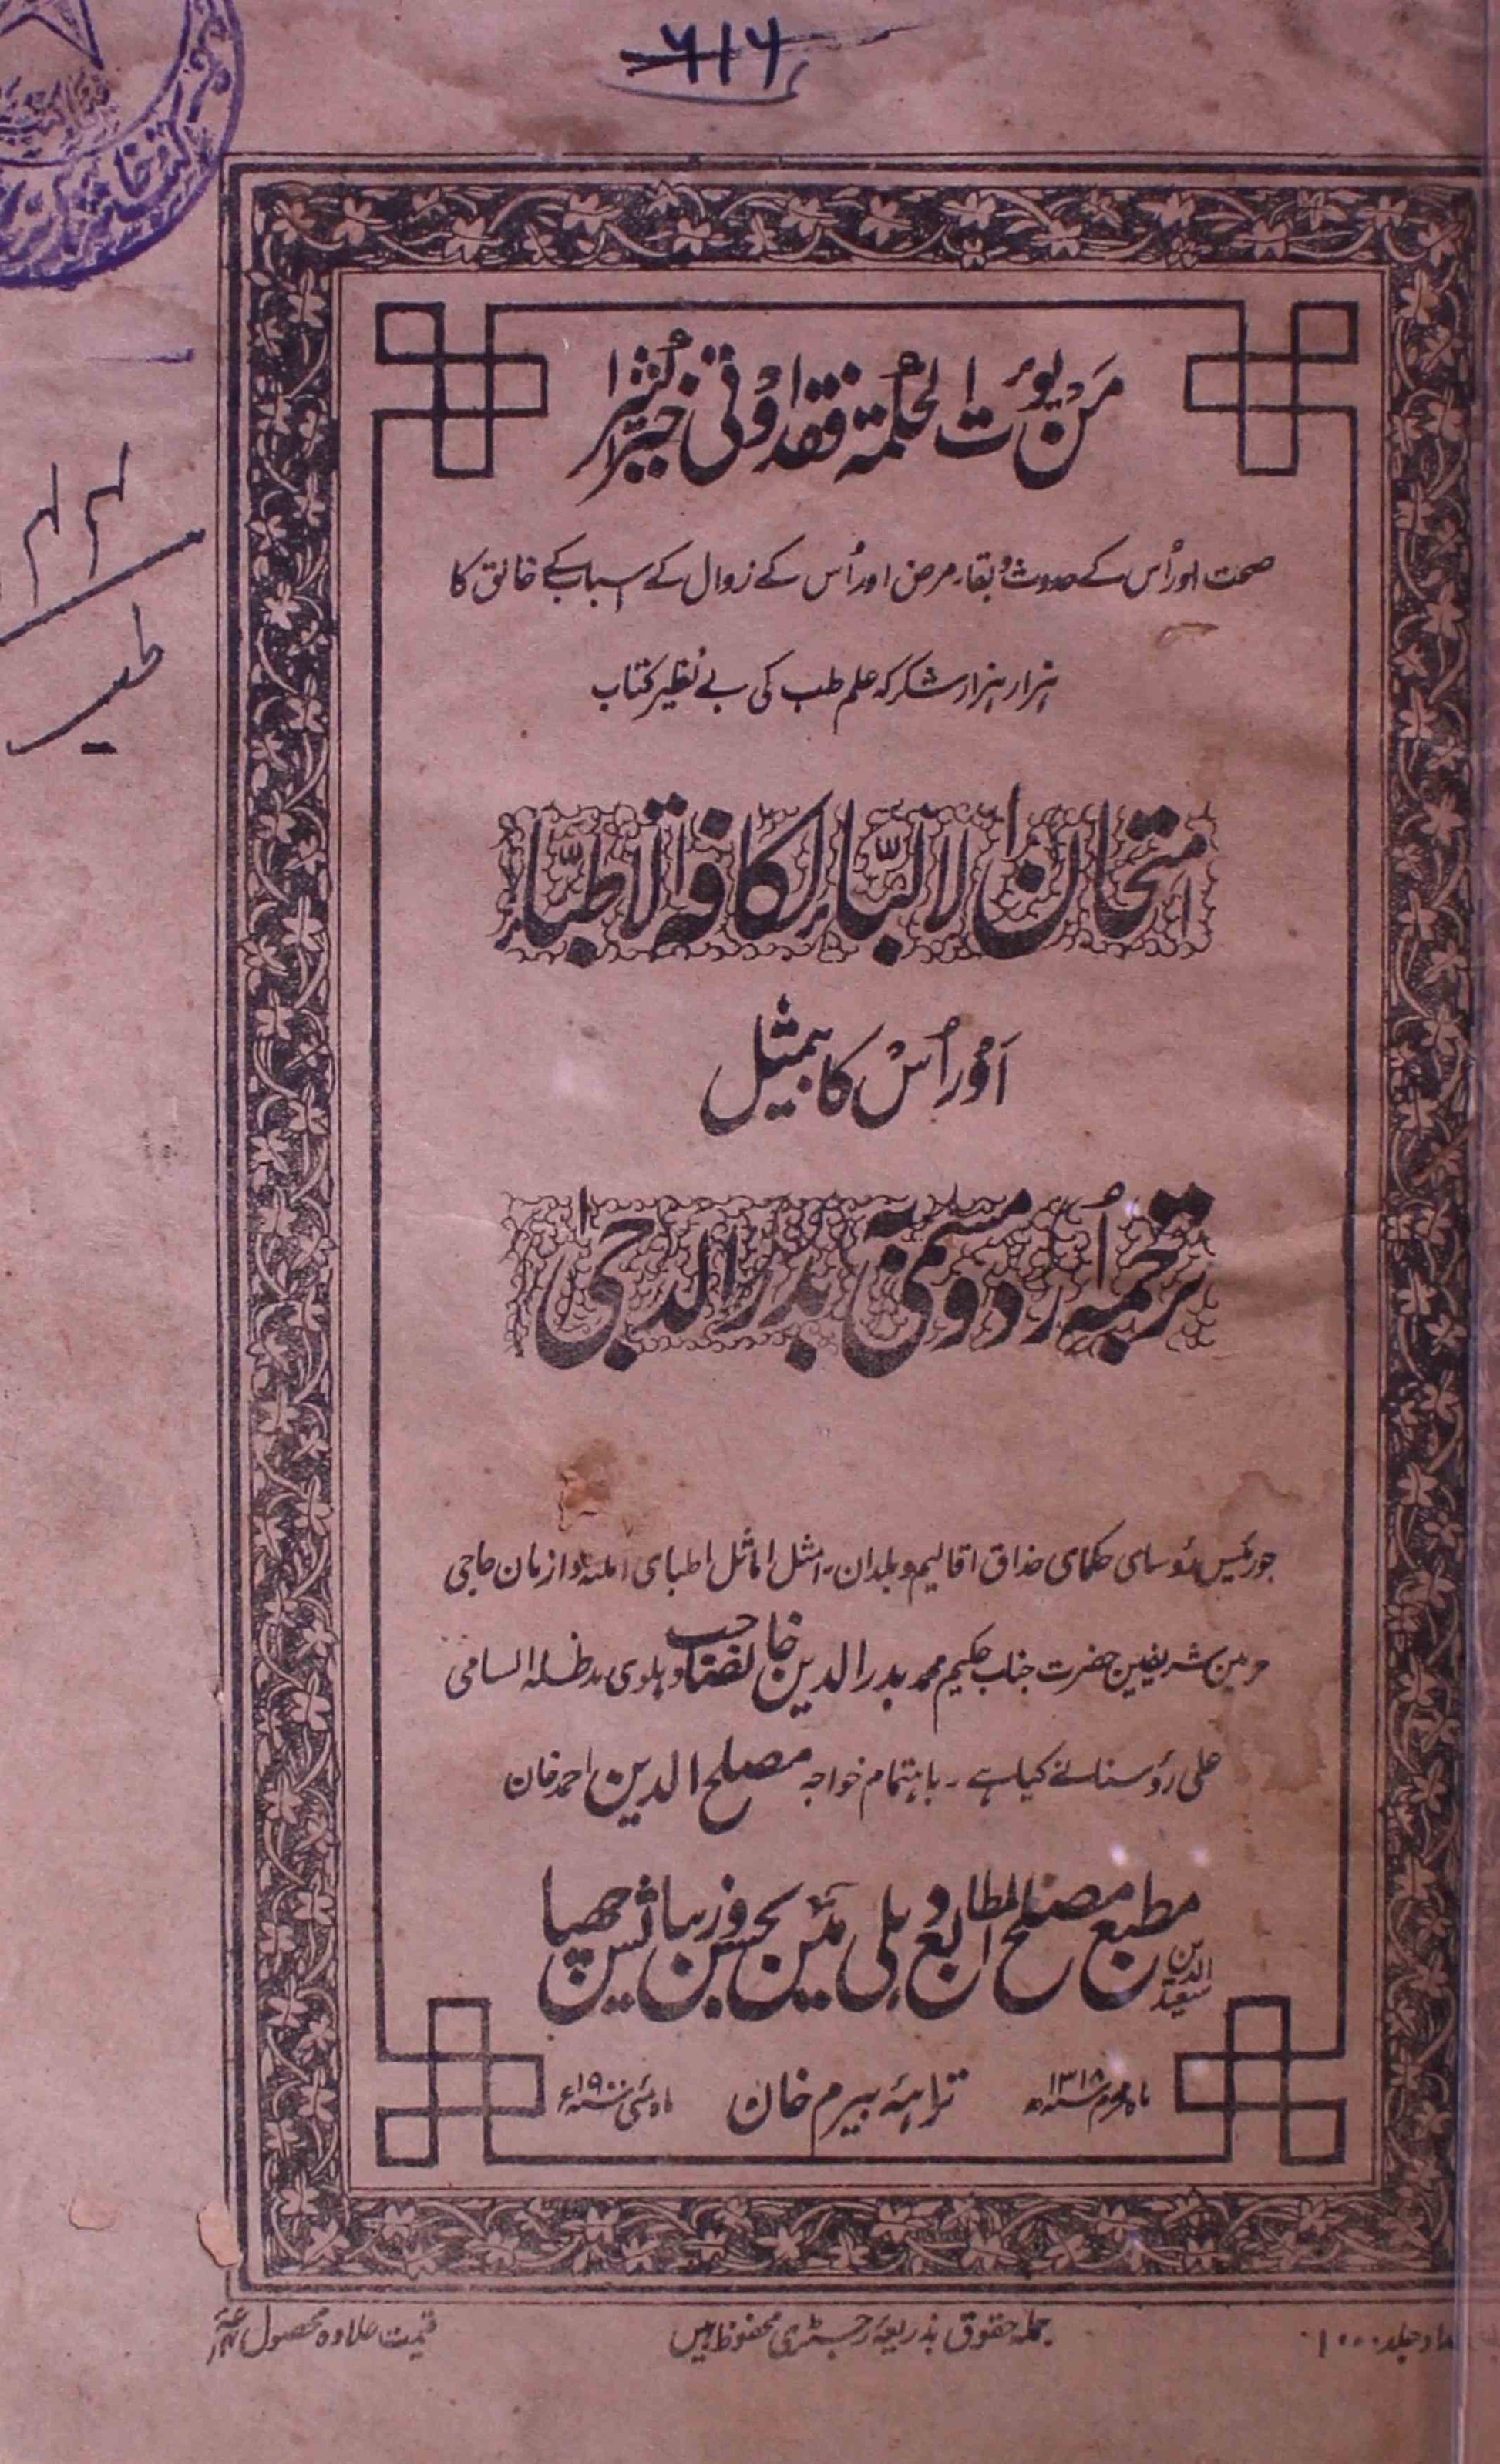 ۶۱۶
کتب خانہ
۴۴
طب
مَنْ یُّؤْتَ الْحِکْمَةَ فَقَدْ اُوْتِیَ خَیْرًا کَثِیْرًا
صحت اور اُس کے حدوث و بقا، مرض اور اُس کے زوال کے اسباب کے خالق کا
ہزار ہزار شکر کہ علم طب کی بے نظیر کتاب
امتحان الالبّاء لکافۃ الاطبّاء
اَوْر اُسْ کا ہمثیل
ترجمۂ اُردو مسمّی بہ بدر الدجی
جو رئیس رؤسای حکمای حذاق اقالیم و بلدان۔ امثل اماثل اطبای امکنہ و ازمان حاجی
حرمین شریفین حضرت جناب حکیم محمد بدر الدین خان صاحب دہلوی مد ظلہ السامی
علی رؤسنا نے کیا ہے۔ باہتمام خواجہ مصلح الدین احمد خان
مطبع مصلح المطابع دہلی میْں بحسن وزیبائش چھپا
سعید الدین
ماہ محرم سنہ ۱۳۱۸ھ تراہۂ بیرم خان ماہ مئی سنہ ۱۹۰۰ء
تعداد جلد ۱۰۰۰ جملہ حقوق بذریعۂ رجسٹری محفوظ ہیں قیمت علاوہ محصول